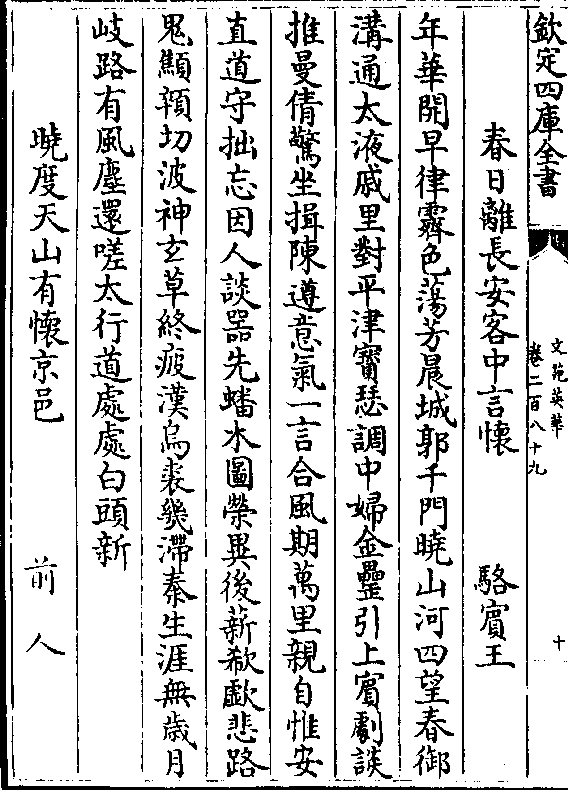 欽定四庫全書
文苑英華
卷二百八十九
十
春日離長安客中言懷 駱賓王
年華開早律霽色蕩芳晨城郭千門曉山河四望春御
溝通太液戚里對平津寶瑟調中婦金罍引上賓劇談
推曼倩驚坐揖陳遵意氣一言合風期萬里親自惟安
直道守拙忘因人談器先蟠木圖榮異後薪欷歔悲路
鬼顦顇切波神玄草終疲漢烏裘幾滯秦生涯無歳月
岐路有風塵還嗟太行道處處白頭新
曉度天山有懷京邑 前人